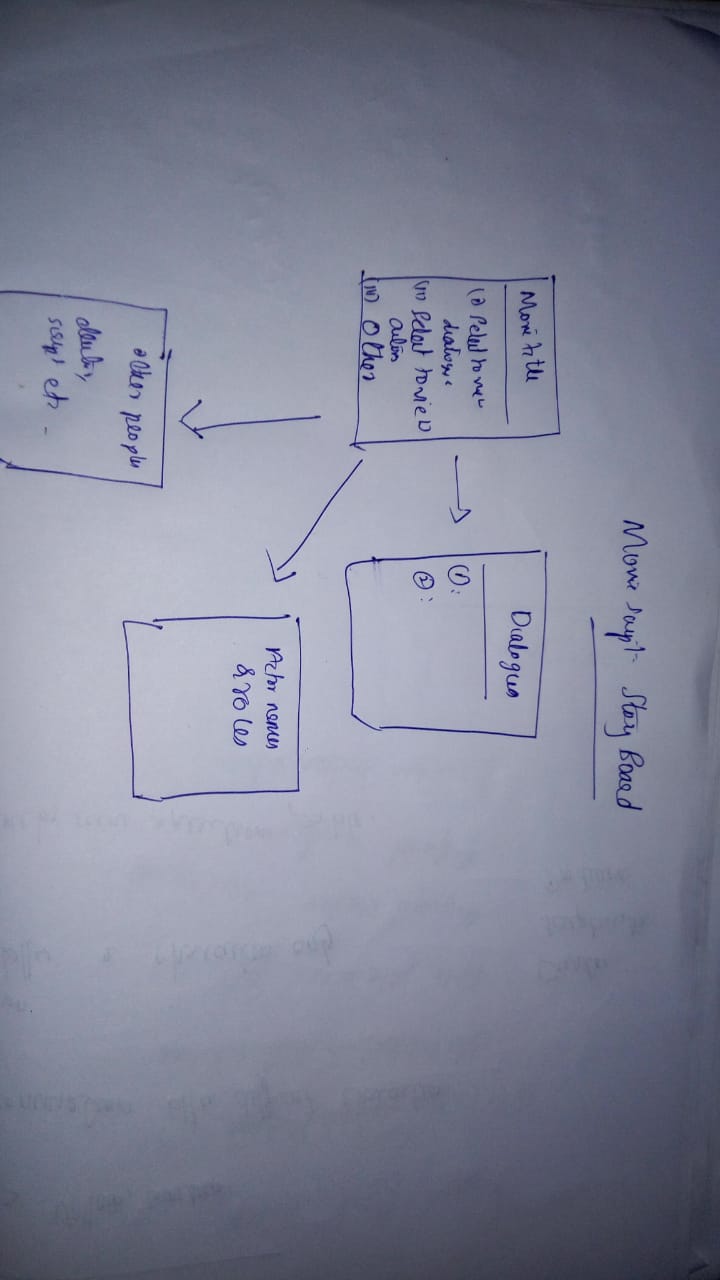 Movie script - Story Board
Movie title
(i) Select to view
dialogue
(ii) Select to view
actors
(iii) Others
Dialogues
(1):
(2):
Actor names
& roles
other people
script etc -